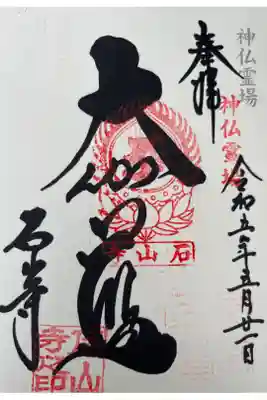 神仏霊場
神仏霊場
奉拝
令和五年五月廿一日
大伽藍
石山寺
石山寺